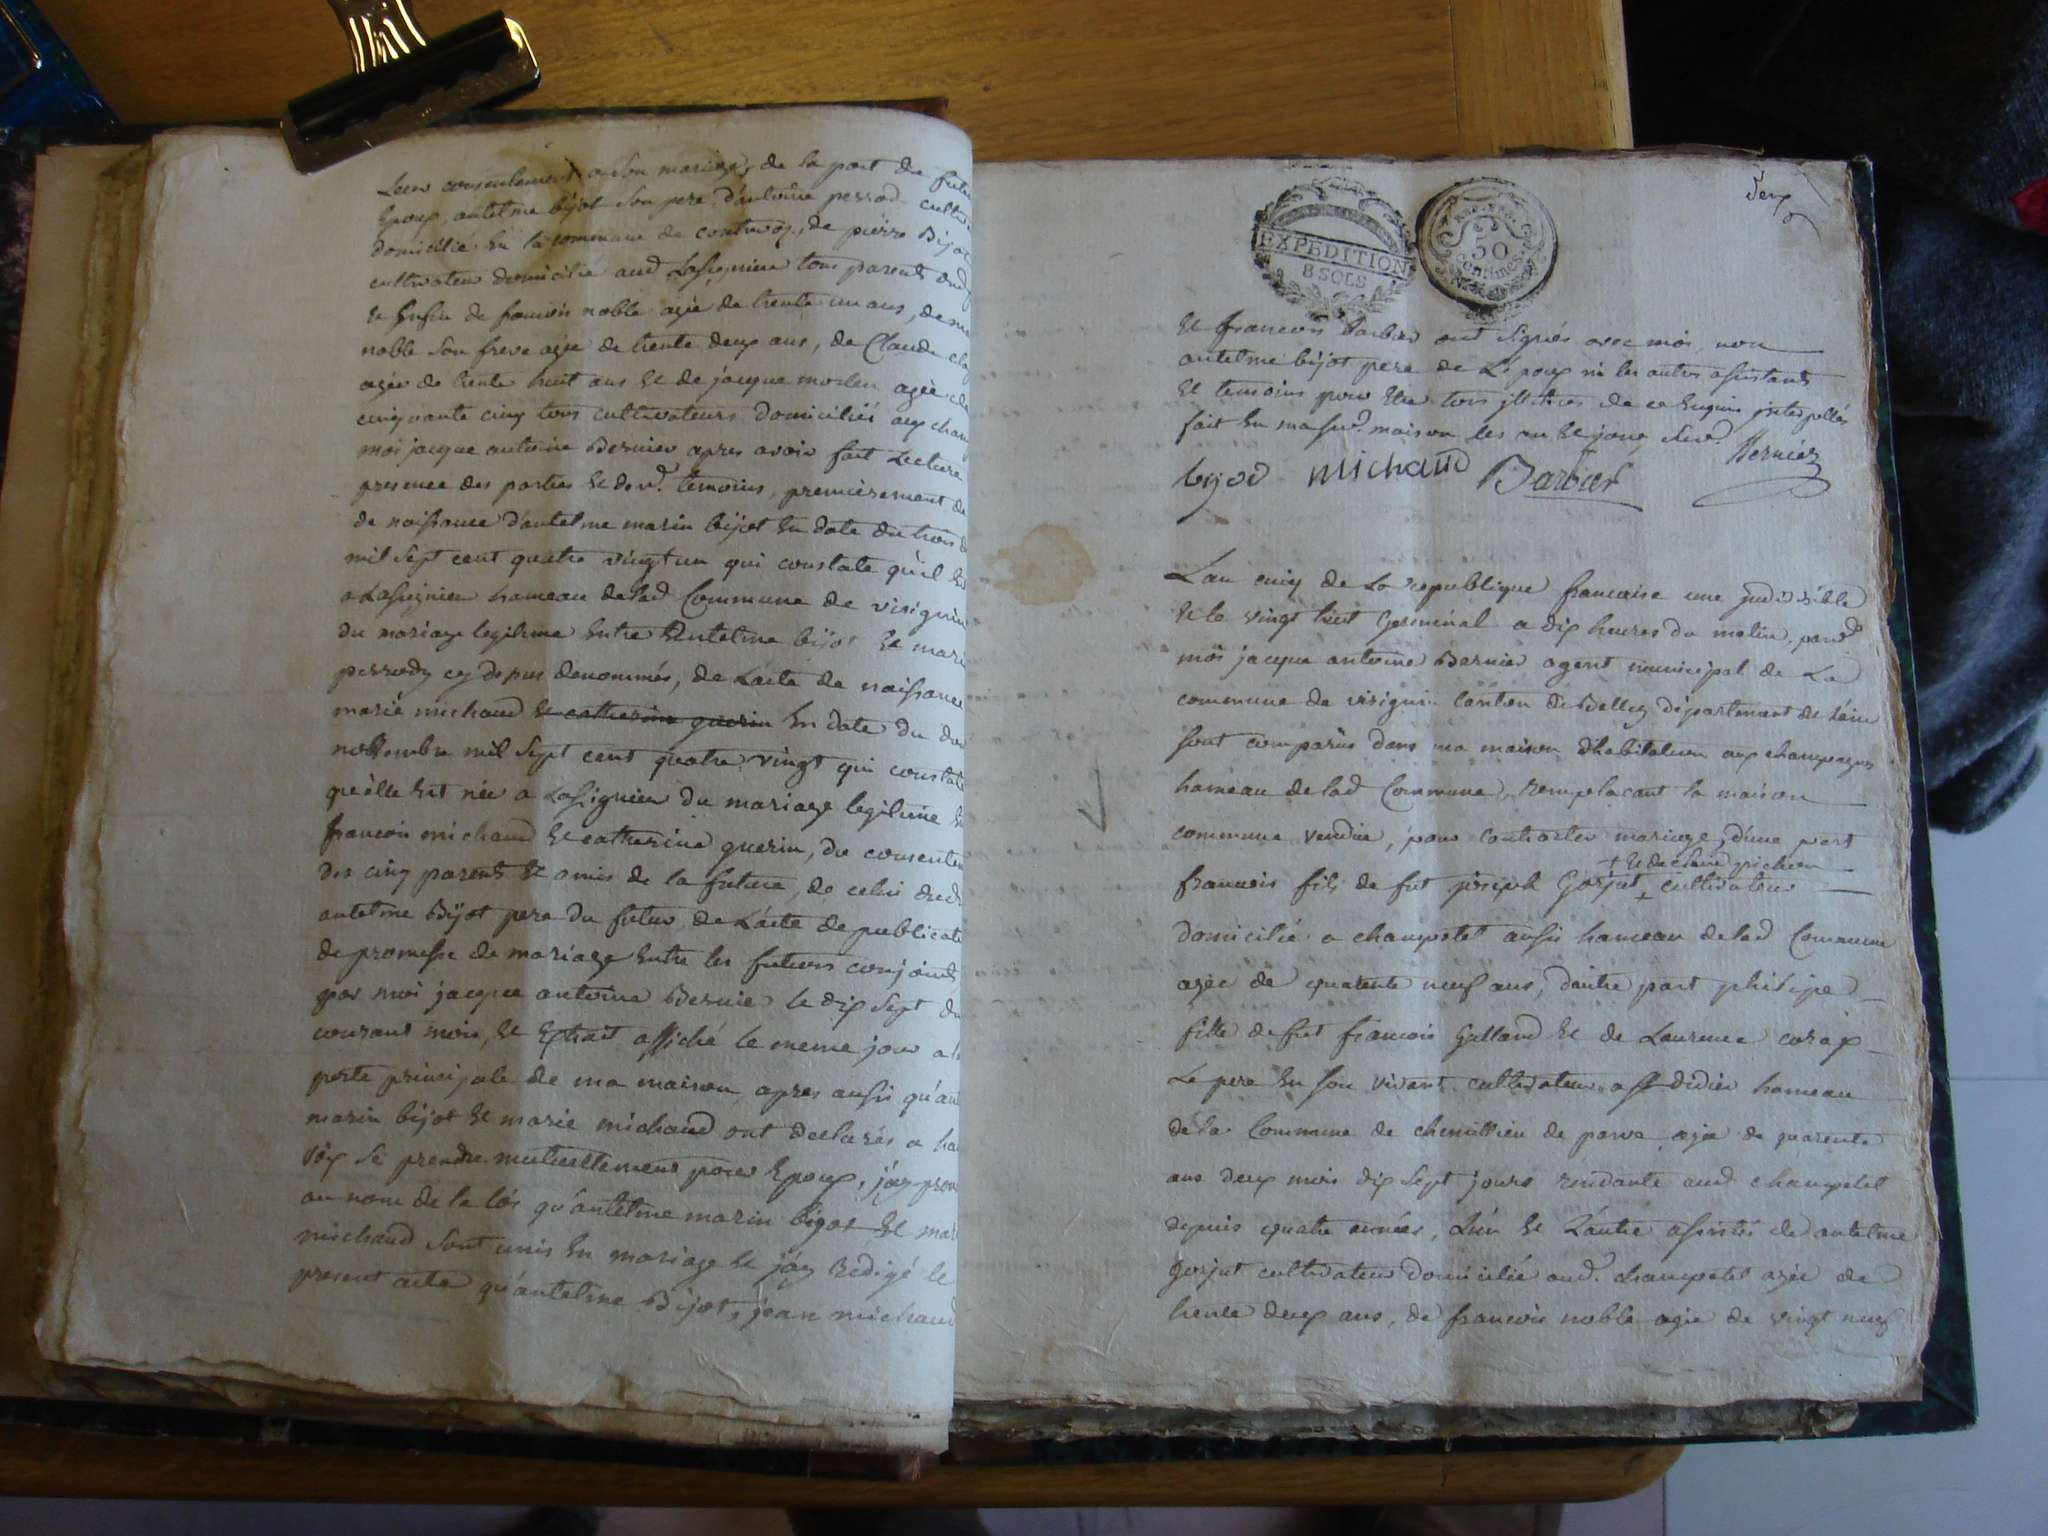 Leur consentement a son mariage, de la part du futur
Epoux, antelme bijot son pere d'antoine perrod cultiv
domicilié En la commune de contrevoz, de pierre Bijot
cultivateur domicilié aud Lassignieu tous parents dud
Et Enfin de francois noble agée de trente un ans, de
noble son frere agée de trente deux ans, de Claude
agée de trente huit ans Et de jacque agée de
cinquante cinq tous cultivateurs domiciliés aux cham
moi jacque antoine Bernier apres avoir fait Lecture
presence des parties Et desd. temoins, premièrement de
de naissance d'antelme marin bijot En date du trois
mil sept cent quatre vingt un qui constate qu'il Est
a Lassignieu hameau delad Commune de virignin
du mariage legitime Entre antelme bijot Et mari
cy dessus denommés, de Lacte de naissance
marie michaud Et catherine guerin En date du
novembre mil sept cent quatre vingt qui constate
qu'elle Est née a Lassignieu du mariage legitime En
francois michaud Et catherine guerin, du consentem
des cinq parents Et amis de la future, de celui dud.
antelme Bijot pere du futur de Lacte de publicati
de promesse de mariage Entre les futurs conjoints
par moi jacque antoine Bernie le dix sept du
courant mois, Et Extrait affiché le meme jour a la
porte principale de ma maison, apres aussi qu'an
marin bijot Et marie michaud ont declarés a hau
voix se prendre mutuellement pour Epoux, j'ay pron
au nom de la loi qu'antelme marin bijot Et mar
michaud sont unis En mariage Et j'ay Redigé le
present acte qu'antelme Bijot, jean michaud
EXPEDITION
8 SOLS
50
Centimes
Deux
Et francois barbier ont signés avec moi, non
antelme bijot pere de L'Epoux ni les autres assistants
Et temoins pour Etre tous de ce Enquis interpellés
fait En masusd. maison les an Et jour susd.
bijod michaud Barbier Bernier
Lan cinq de La republique francaise une indivisible
Et le vingt huit Germinal a dix heures du matin, pard.
moi jacque antoine Bernier agent municipal de La
commune de virignin Canton de Belley departement de Lain
sont comparus dans ma maison d'habitation aux champagnes
hameau delad Commune, remplacant la maison
commune vendue, pour contracter mariage, d'une part
+ Et de claire
francois fils de fut joseph Gorjut + cultivateur
domicilié a champetel aussi hameau delad Commune
agée de quarente neuf ans, d'autre part philipe
fille de fut francois Galland Et de Laurence corax
Le pere En son vivant cultivateur a St didier hameau
de la Commune de chemillieu de parve agée de quarente
ans deux mois dix sept jours residante aud champetel
depuis quatre années, L'un Et L'autre assistés de antelme
gorjut cultivateur domicilié aud. champetel agée de
trente deux ans, de francois noble agée de vingt neuf